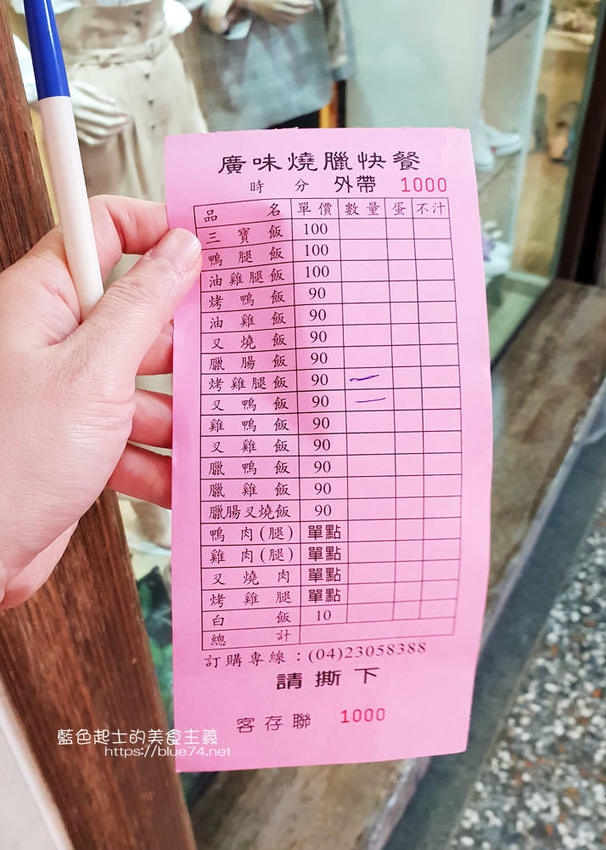 廣味燒臘快餐
時 分 外帶 1000
品名 單價 數量 蛋 不汁
三寶飯 100
鴨腿飯 100
油雞腿飯 100
烤鴨飯 90
油雞飯 90
叉燒飯 90
臘腸飯 90
烤雞腿飯 90 一
叉鴨飯 90 一
雞鴨飯 90
叉雞飯 90
臘鴨飯 90
臘雞飯 90
臘腸叉燒飯 90
鴨肉(腿) 單點
雞肉(腿) 單點
叉燒肉 單點
烤雞腿 單點
白飯 10
總計
訂購專線：(04)23058388
請撕下
客存聯 1000
藍色起士的美食主義
https://blue74.net